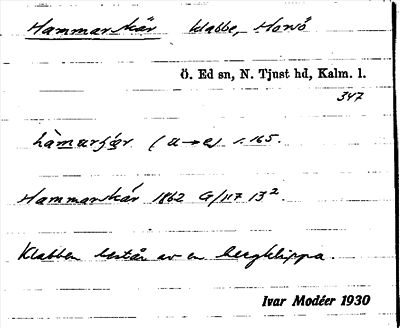 Hammarskär klabbe, Horsö
Ö. Ed sn, N. Tjust hd, Kalm. l.
347
hàmarʃær (a→e) s. 165.
Hammarskär 1862 G/117 13²
Klabben består av en bergklippa.
Ivar Modéer 1930